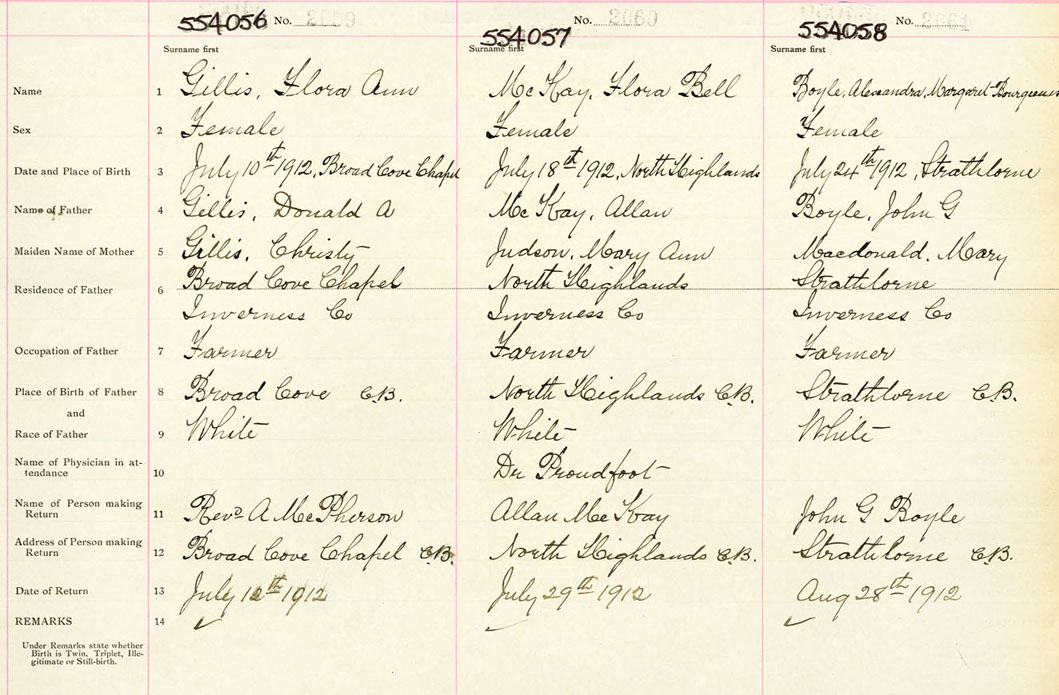 554056 No. 2059 554057 No. 2060 554058 No. 2061
Surname first Surname first Surname first
Name 1 Gillis, Flora Ann McKay, Flora Bell Boyle, Alexandra, Margaret
Sex 2 Female Female Female
Date and Place of Birth 3 July 10th 1912, Broad Cove Chapel July 18th 1912, North Highlands July 24th 1912, Strathlorne
Name of Father 4 Gillis, Donald A McKay, Allan Boyle, John G
Maiden Name of Mother 5 Gillis, Christy Judson, Mary Ann Macdonald, Mary
Residence of Father 6 Broad Cove Chapel North Highlands Strathlorne
Inverness Co Inverness Co Inverness Co
Occupation of Father 7 Farmer Farmer Farmer
Place of Birth of Father 8 Broad Cove C.B. North Highlands C.B. Strathlorne C.B.
and
Race of Father 9 White White White
Name of Physician in at-
tendance 10 Dr Proudfoot
Name of Person making
Return 11 Revd A McPherson Allan McKay John G Boyle
Address of Person making
Return 12 Broad Cove Chapel C.B. North Highlands C.B. Strathlorne C.B.
Date of Return 13 July 12th 1912 July 29th 1912 Aug 28th 1912
REMARKS 14
Under Remarks state whether
Birth is Twin, Triplet, Ille-
gitimate or Still-birth.